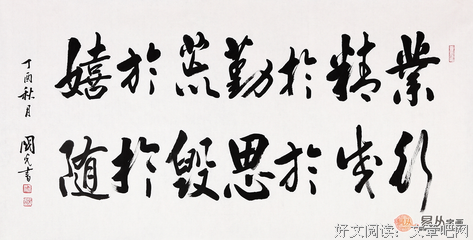 業精於勤荒於嬉
行成於思毁於随
丁酉秋月
易从字画
好文阅读：文章吧网